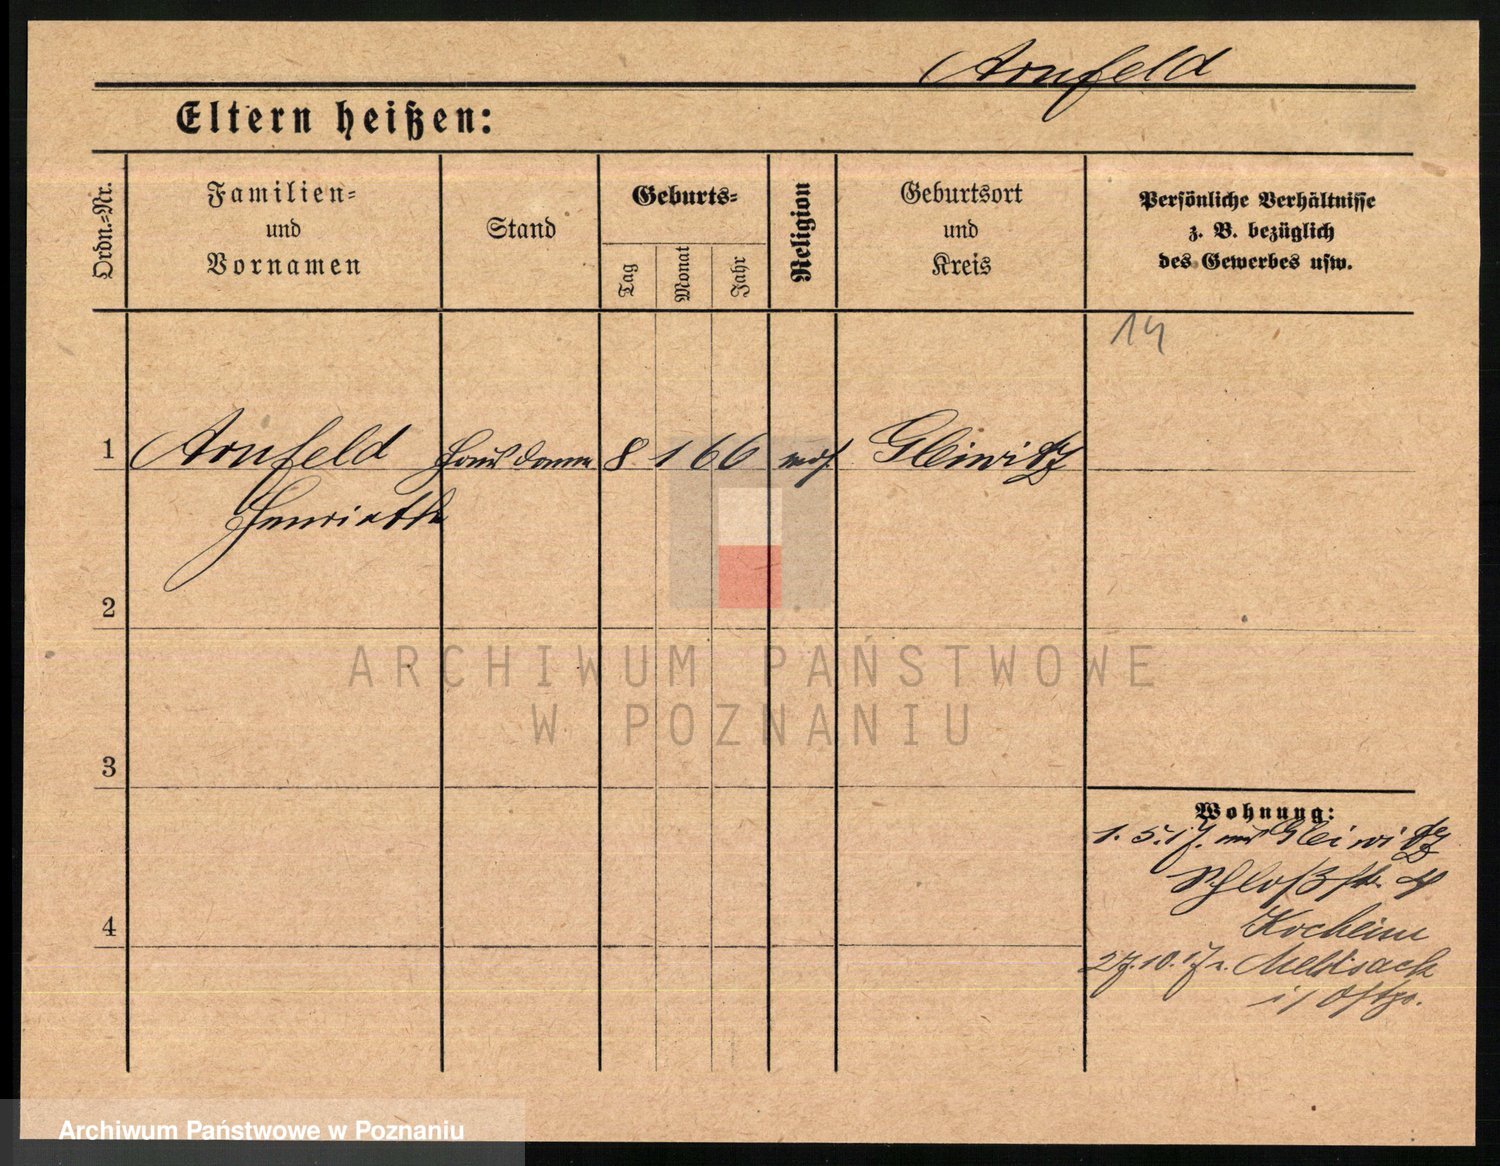 Arnfeld
Eltern heißen:
Ordn.=Nr.
Familien=
und
Vornamen
Stand
Geburts=
Tag
Monat
Jahr
Religion
Geburtsort
und
Kreis
Persönliche Verhältnisse
z. B. bezüglich
des Gewerbes usw.
14
1
Arnfeld
Henriette
Hausdame
8
1
66
mos.
Gleiwitz
2
ARCHIWUM PAŃSTWOWE
W POZNANIU
3
Wohnung:
1. 5. 17. aus Gleiwitz
Schloßstr. 4
Kochheim
27. 10. 17 n. Mehlsack
i/ Ostpr.
4
Archiwum Państwowe w Poznaniu